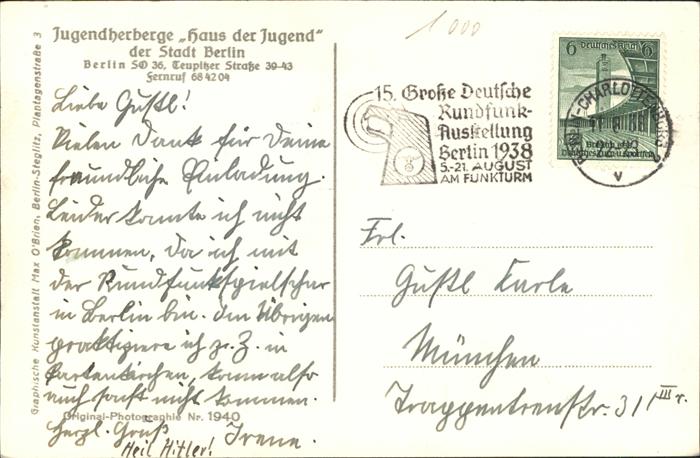 Jugendherberge „Haus der Jugend“
der Stadt Berlin
Berlin SO 36, Teupitzer Straße 39-43
Fernruf 68 42 04
Liebe Gustl!
Vielen Dank für Deine
freundliche Einladung.
Leider konnte ich nicht
kommen, da ich mit
der Rundfunkspielschar
in Berlin bin. Im Übrigen
praktiziere ich z. Z. in
Partenkirchen, kann also
auch sonst nicht kommen.
Original-Photographie Nr. 1940
Herzl. Gruß Irene.
Heil Hitler!
Graphische Kunstanstalt Max O'Brien, Berlin-Steglitz, Plantagenstraße 3
1000
15. Große Deutsche
Rundfunk-
Ausstellung
Berlin 1938
5.-21. AUGUST
AM FUNKTURM
6 Deutsches Reich 6
CHARLOTTENBURG
v
Frl.
Gustl Karle
München
Trappentreustr. 31 III r.